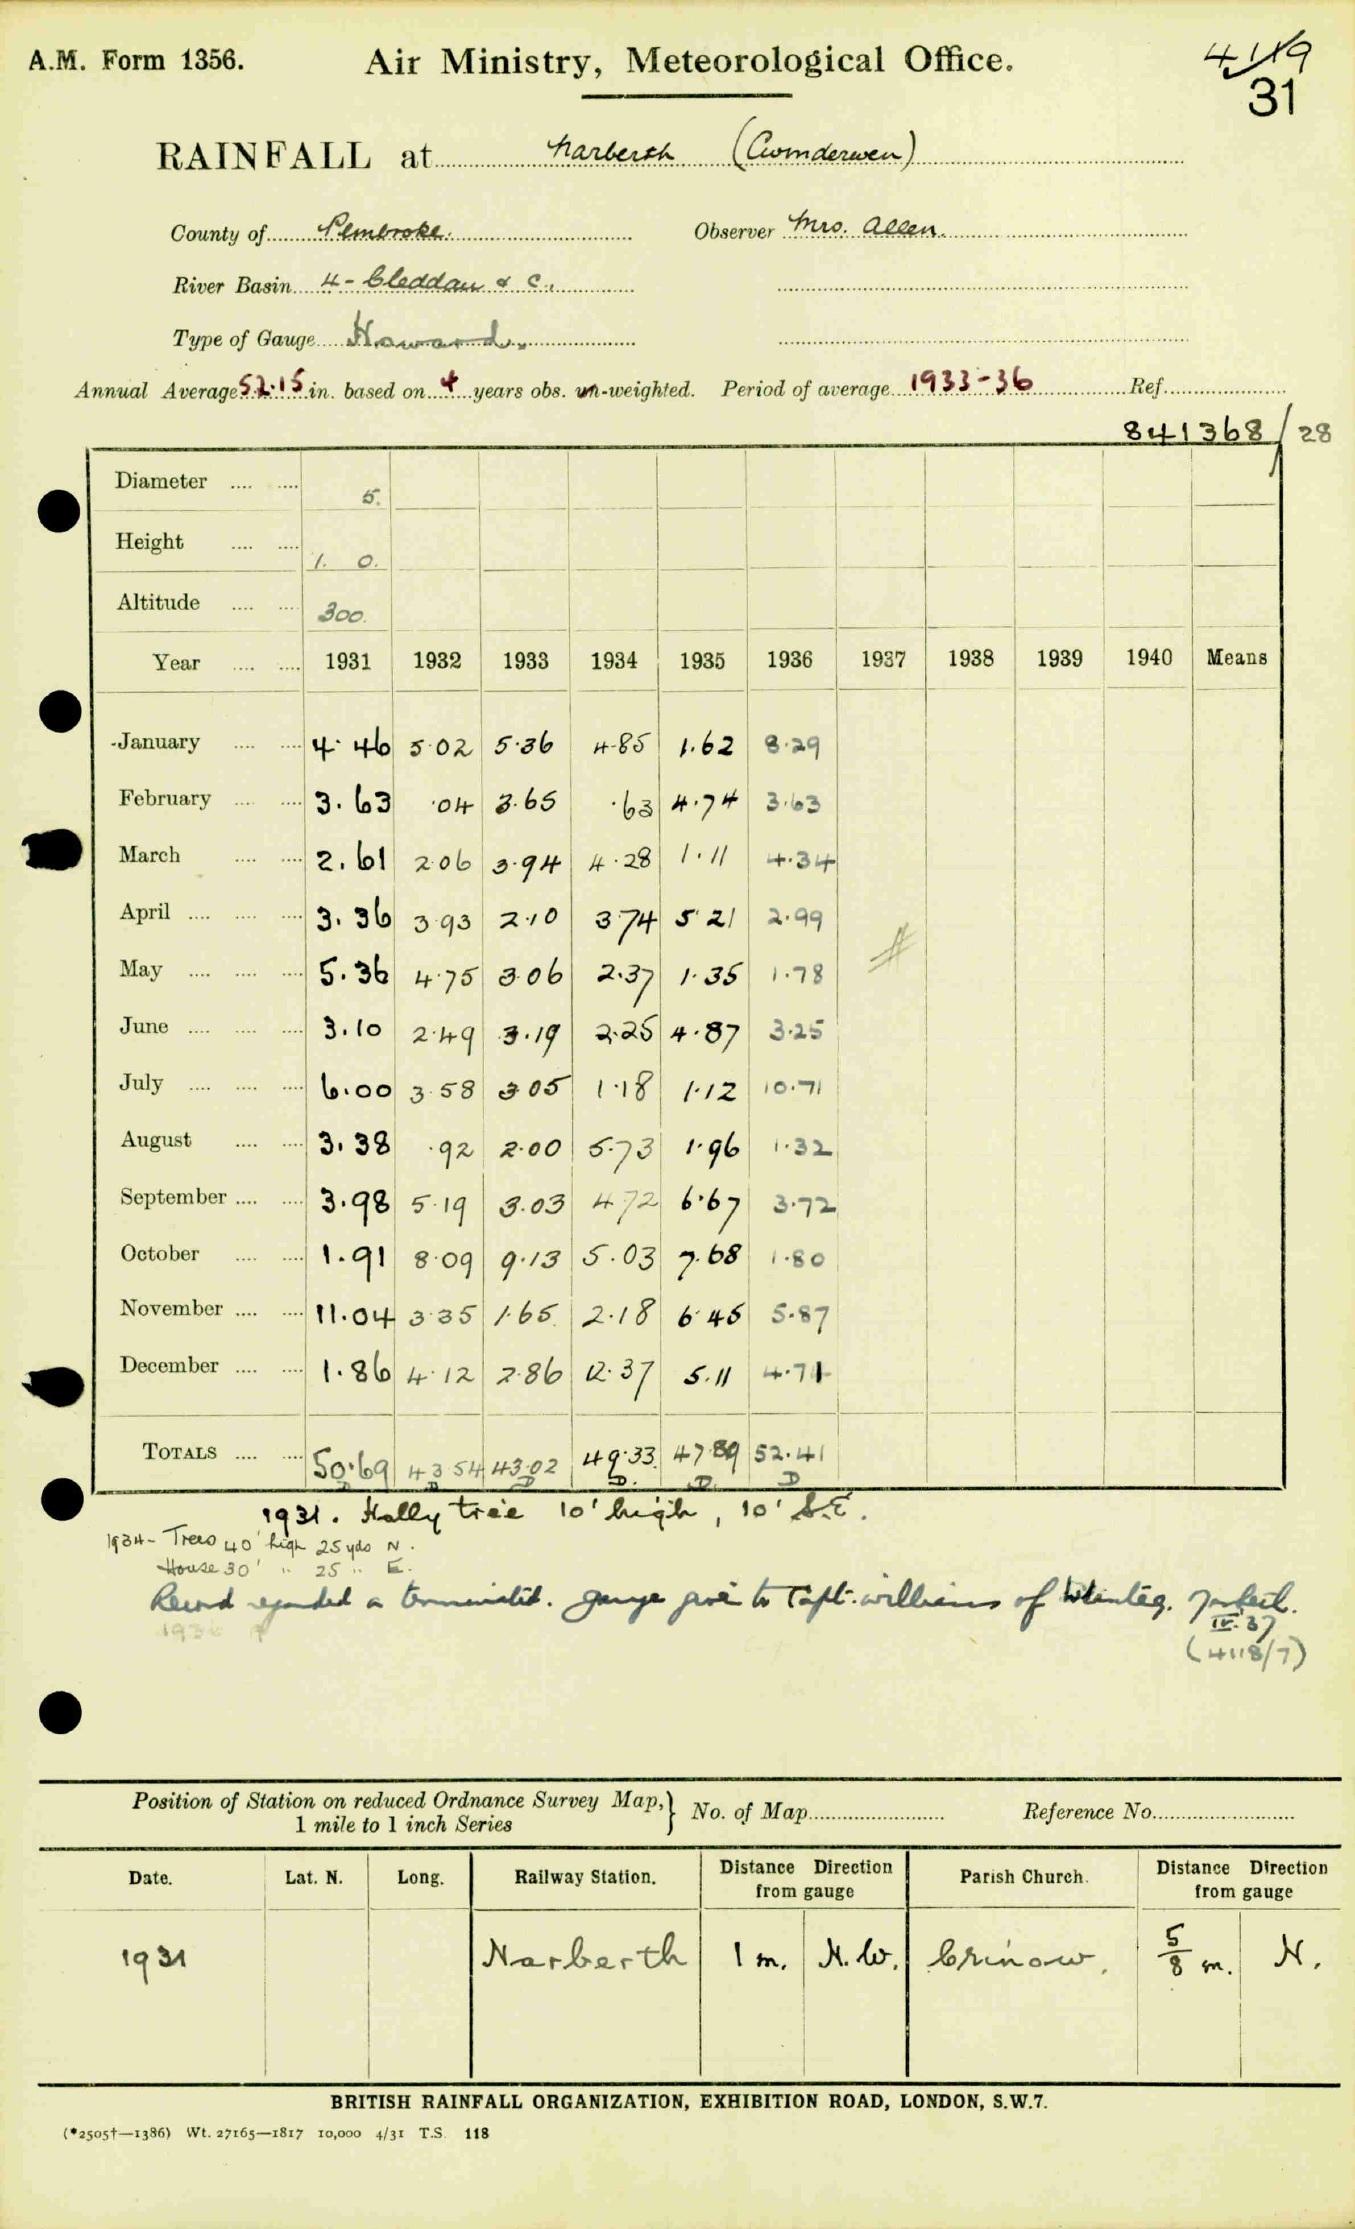 A.M. Form 1356. Air Ministry, Meteorological Office. 4119
31
RAINFALL at Narberth (Cwmderwen)
County of Pembroke. Observer Mrs. Allen.
River Basin 4 - Cleddau & C.
Type of Gauge Howard.
Annual Average 52.15 in. based on 4 years obs. un-weighted. Period of average 1933-36 Ref.
841368/28
Diameter .... .... 5.
Height .... .... 1. 0.
Altitude .... .... 300.
Year .... .... 1931 1932 1933 1934 1935 1936 1937 1938 1939 1940 Means
January .... .... 4.46 5.02 5.36 4.85 1.62 8.29
February .... .... 3.63 .04 3.65 .63 4.74 3.63
March .... .... 2.61 2.06 3.94 4.28 1.11 4.34
April .... .... .... 3.36 3.93 2.10 3.74 5.21 2.99
May .... .... .... 5.36 4.75 3.06 2.37 1.35 1.78
June .... .... .... 3.10 2.49 3.19 2.25 4.87 3.25
July .... .... .... 6.00 3.58 3.05 1.18 1.12 10.71
August .... .... 3.38 .92 2.00 5.73 1.96 1.32
September .... .... 3.98 5.19 3.03 4.72 6.67 3.72
October .... .... 1.91 8.09 9.13 5.03 7.68 1.80
November .... .... 11.04 3.35 1.65 2.18 6.45 5.87
December .... .... 1.86 4.12 2.86 12.37 5.11 4.71
TOTALS .... .... 50.69 43.54 43.02 49.33 47.89 52.41
D D D D. D. D
1931. Holly tree 10' high, 10' S.E.
1934 - Trees 40' high 25 yds N.
House 30' " 25 " E.
Record regarded as terminated. Gauge given to Capt. Williams of
IV.37
(4118/7)
Position of Station on reduced Ordnance Survey Map, } No. of Map Reference No.
1 mile to 1 inch Series
Date. Lat. N. Long. Railway Station. Distance Direction from gauge Parish Church. Distance Direction from gauge
1931 Narberth 1 m. N.W. Crinow. 5/8 m. N.
BRITISH RAINFALL ORGANIZATION, EXHIBITION ROAD, LONDON, S.W.7.
(*2505†—1386) Wt. 27165—1817 10,000 4/31 T.S. 118